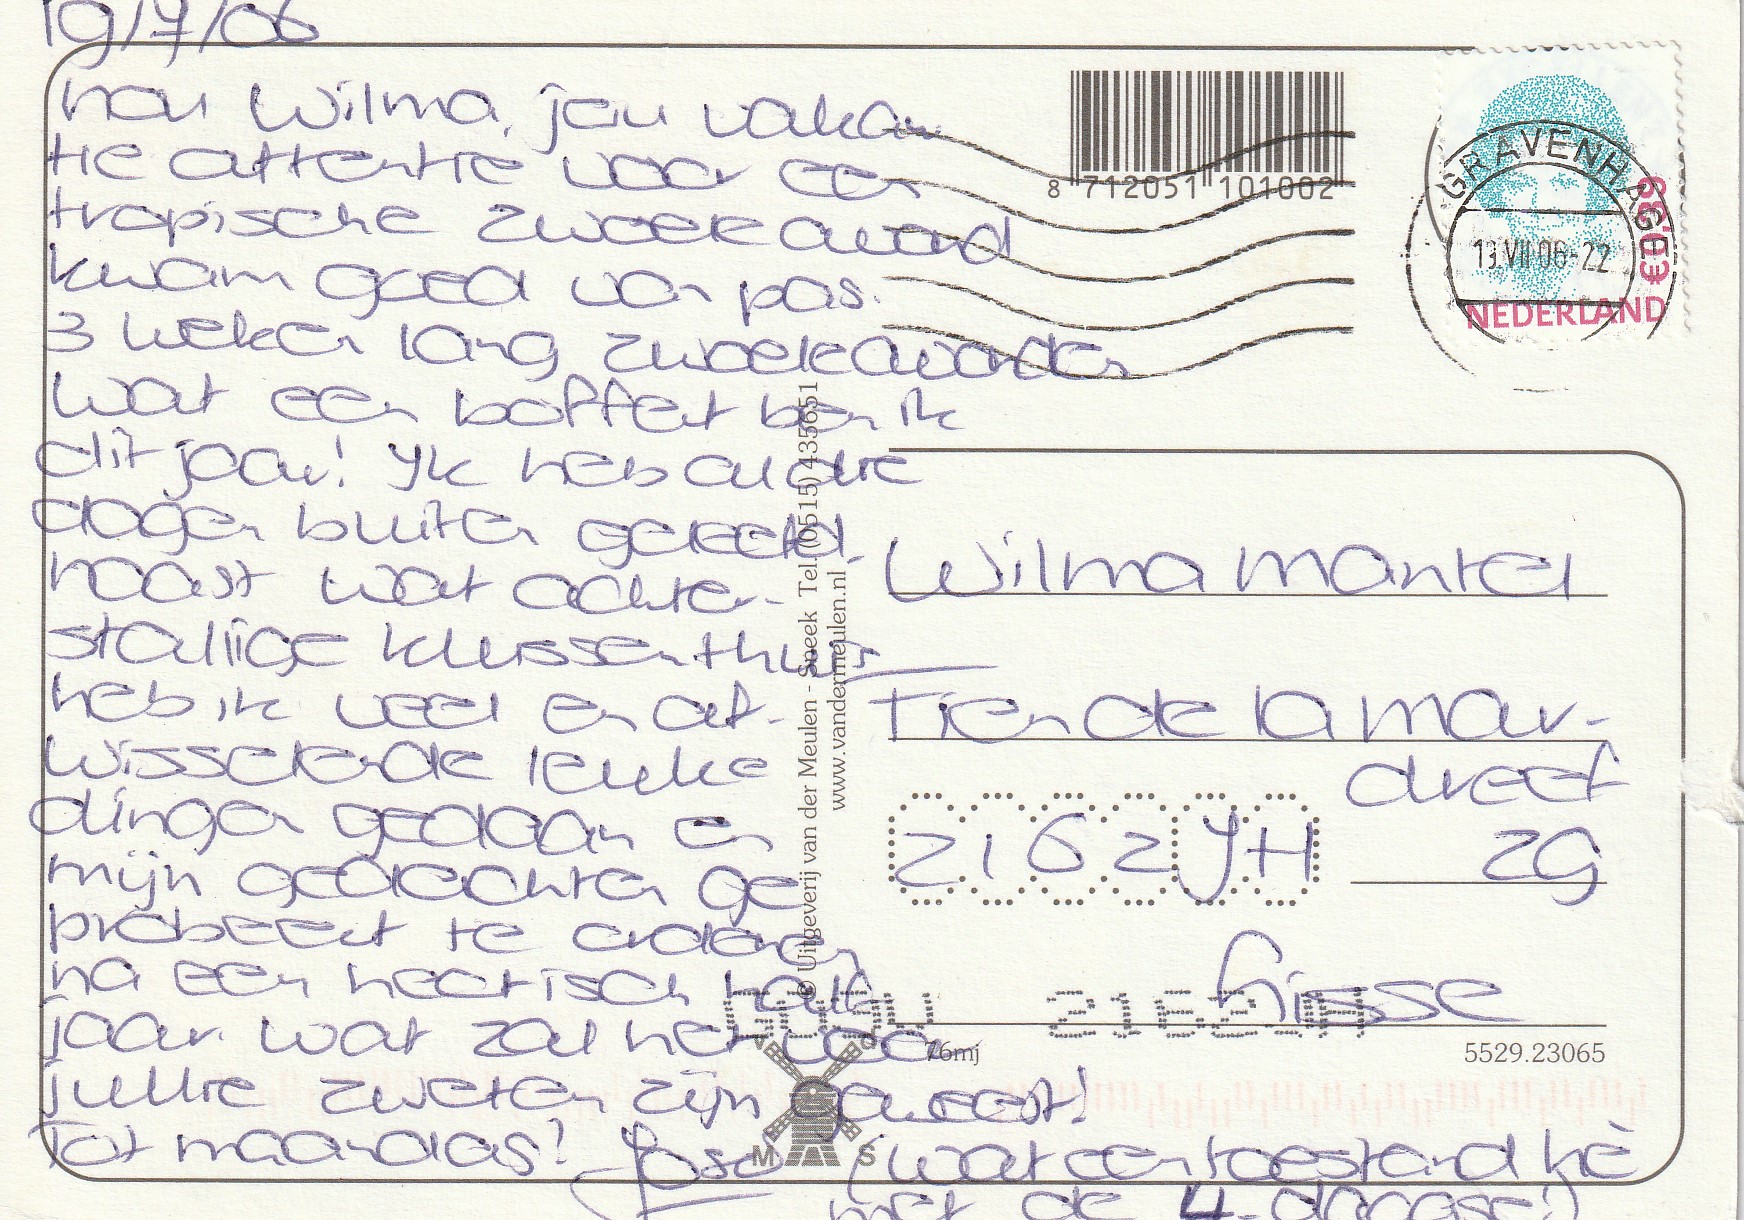 19/7/06
nou Wilma, jou vakan
tie attentie voor een
tropische zwoele avond
kwam goed van pas.
3 weken lang zwoele avonden
wat een boffert ben ik
dit jaar! Ik heb al die
dagen buiten geleefd.
naast wat achter-
stallige klussen thuis
heb ik veel en af-
wisselende leuke
dingen gedaan en
mijn gedachten ge
probeert te ordenen
na een hectisch half
jaar. wat zal het voor
jullie zweten zijn geweest!
Tot maandag!
(wat een toestand hè
met de 4-daagse!)
8 712051 101002
GRAVENHAGE
13 VII 06-22
€0,39
NEDERLAND
© Uitgeverij van der Meulen - Sneek Tel. (0515) 435651
www.vandermeulen.nl
Wilma Mantel
Tien de la Mar-
dreef
2162 JH 29
Lisse
76mj
5529.23065
M S